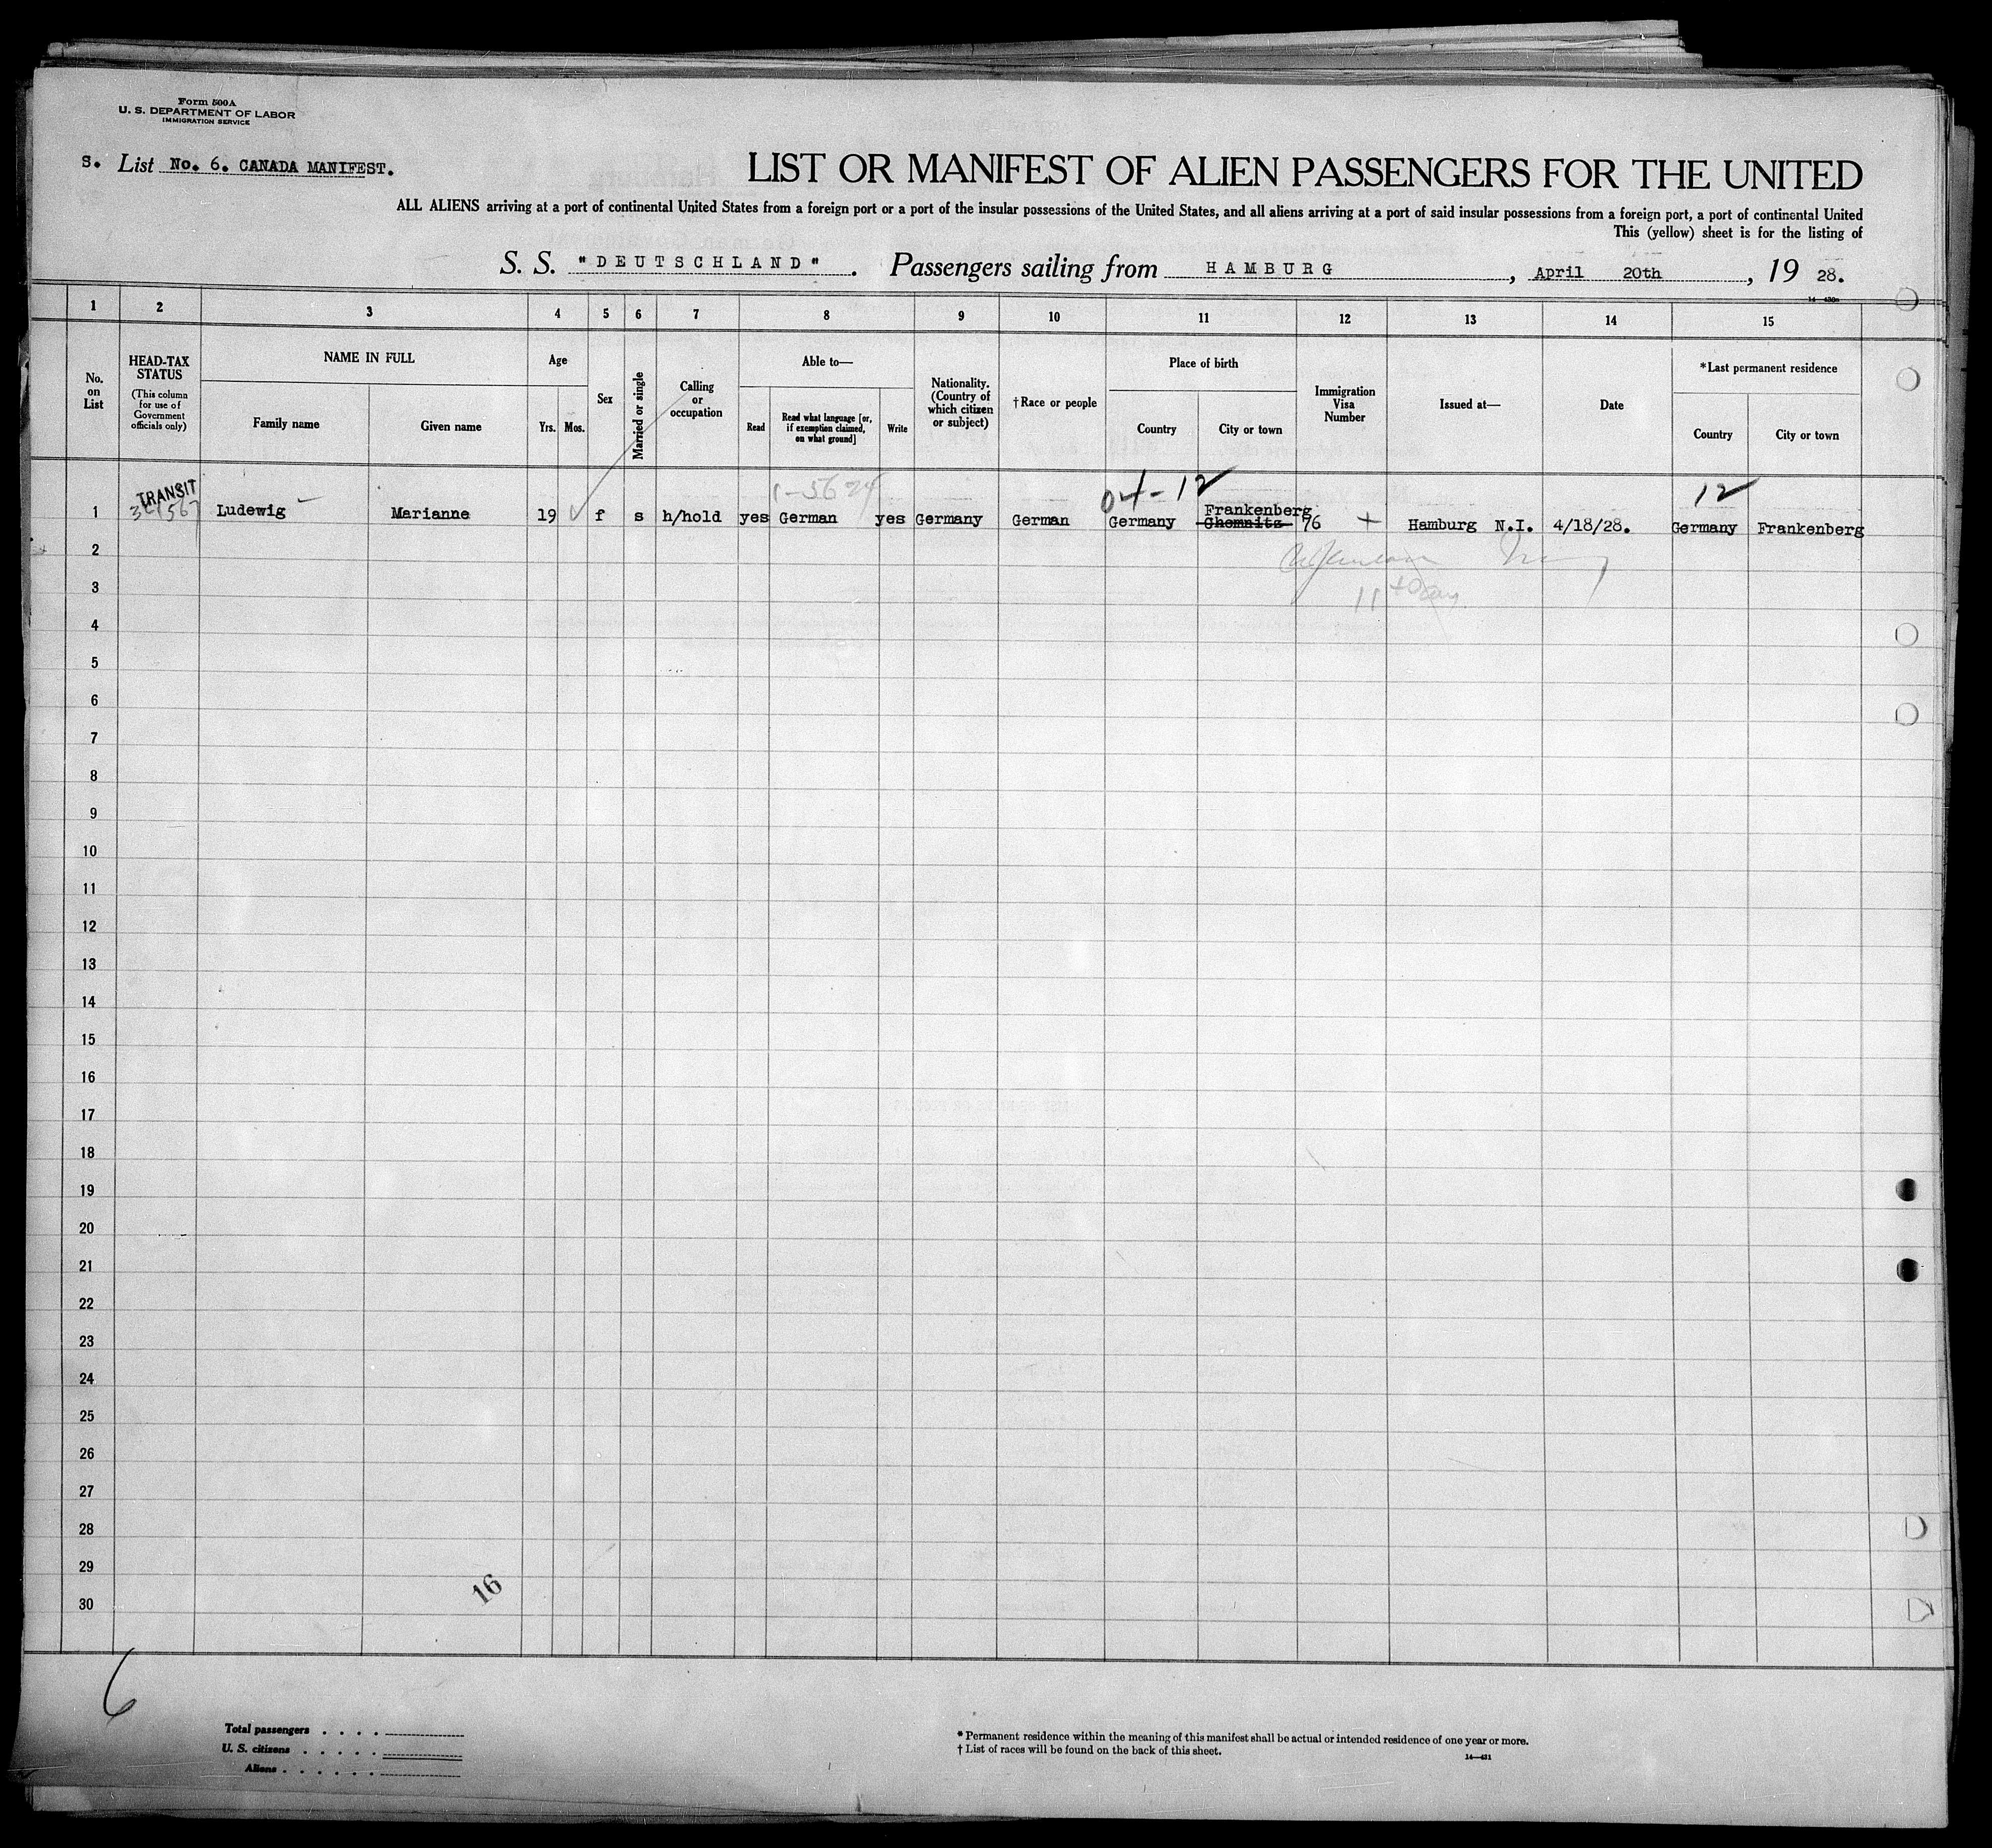 Form 500A
U. S. DEPARTMENT OF LABOR
IMMIGRATION SERVICE
S. List No. 6. CANADA MANIFEST.
LIST OR MANIFEST OF ALIEN PASSENGERS FOR THE UNITED
ALL ALIENS arriving at a port of continental United States from a foreign port or a port of the insular possessions of the United States, and all aliens arriving at a port of said insular possessions from a foreign port, a port of continental United
This (yellow) sheet is for the listing of
S. S. "DEUTSCHLAND". Passengers sailing from HAMBURG, April 20th, 19 28.
1 2 3 4 5 6 7 8 9 10 11 12 13 14 15
No. on List
HEAD-TAX STATUS
(This column for use of Government officials only)
NAME IN FULL
Family name
Given name
Age
Yrs. Mos.
Sex
Married or single
Calling or occupation
Able to—
Read
Read what language [or, if exemption claimed, on what ground]
Write
Nationality. (Country of which citizen or subject)
†Race or people
Place of birth
Country
City or town
Immigration Visa Number
Issued at—
Date
*Last permanent residence
Country
City or town
TRANSIT
04-12
12
1 Ludewig Marianne 19 f s h/hold yes German yes Germany German Germany Frankenberg Chemnitz 76 Hamburg N.I. 4/18/28. Germany Frankenberg
2
3
4
5
6
7
8
9
10
11
12
13
14
15
16
17
18
19
20
21
22
23
24
25
26
27
28
29
30
16
6
Total passengers . . . .
U. S. citizens . . . . .
Aliens . . . . . .
* Permanent residence within the meaning of this manifest shall be actual or intended residence of one year or more.
† List of races will be found on the back of this sheet.
14—431